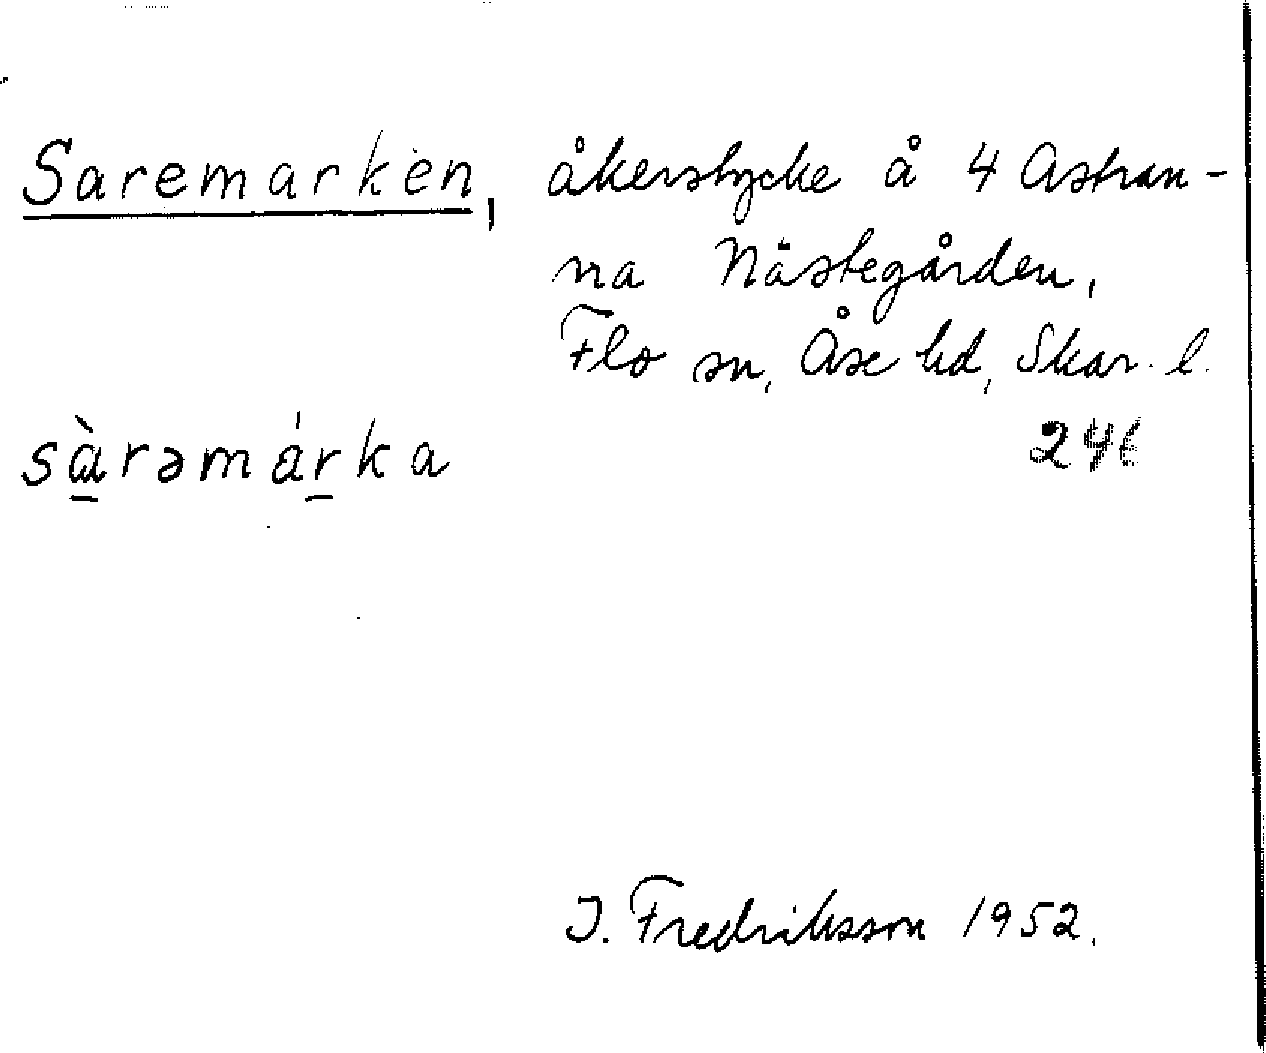 Saremarken, åkerstycke å 4 Astran-
na Nästegården,
Flo sn, Åse hd, Skar. l.
sàrəmárka 246
J. Fredriksson 1952.